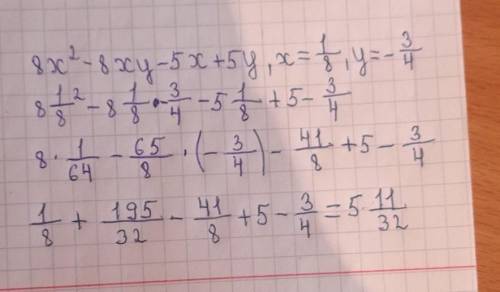 8x² - 8xy - 5x + 5y, x = 1/8, y = -3/4
8 1/8² - 8 1/8 · -3/4 - 5 1/8 + 5 - 3/4
8 · 1/64 - 65/8 · (-3/4) - 41/8 + 5 - 3/4
1/8 + 195/32 - 41/8 + 5 - 3/4 = 5 11/32